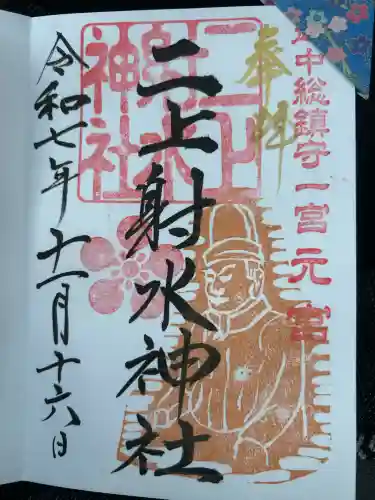 奉拝
越中総鎮守一宮元宮
二上射水神社
二上射水神社
令和七年十一月十六日